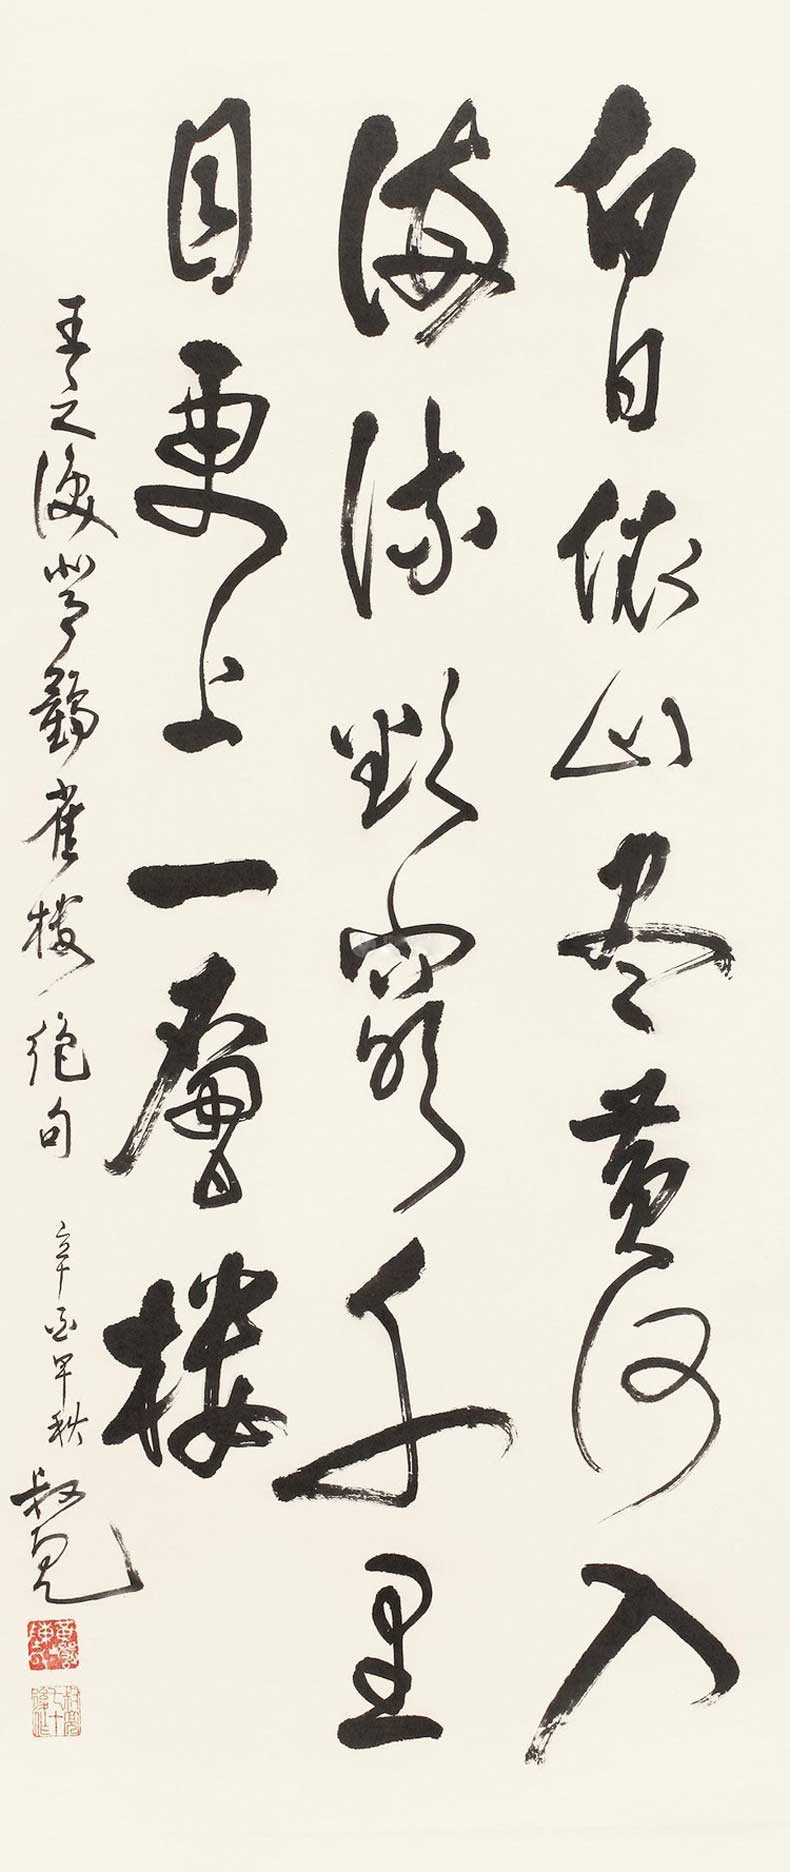 白日依山尽黄河入
海流欲穷千里
目更上一層楼
王之涣登鹳雀楼绝句
辛酉早秋
叔亮